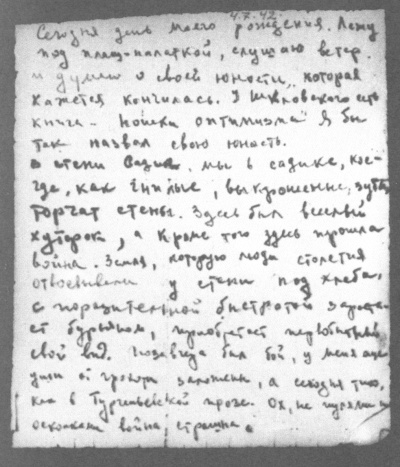 4.7.42.
Сегодня день моего рождения. Лежу
под плащ-палаткой, слушаю ветер
и думаю о своей юности, которая
кажется кончилась. У Шкловского есть
книга „Поиски оптимизма" Я бы
так назвал свою юность.
в степи Мы в садике, кое-
где, как гнилые, выкрошенные, зубы
торчат стены. Здесь был веселый
хуторок, а кроме того здесь прошла
война. Земля, которую люди столетия
отвоевывали у степи под хлеба,
с поразительной быстротой зараста-
ет бурьяном, приобретает первобытный
свой вид. Позавчера был бой, у меня
уши от грохота заложены, а сегодня тихо,
как в Тургеньевской прозе. Ох, не пулями и
осколками война, страшна.